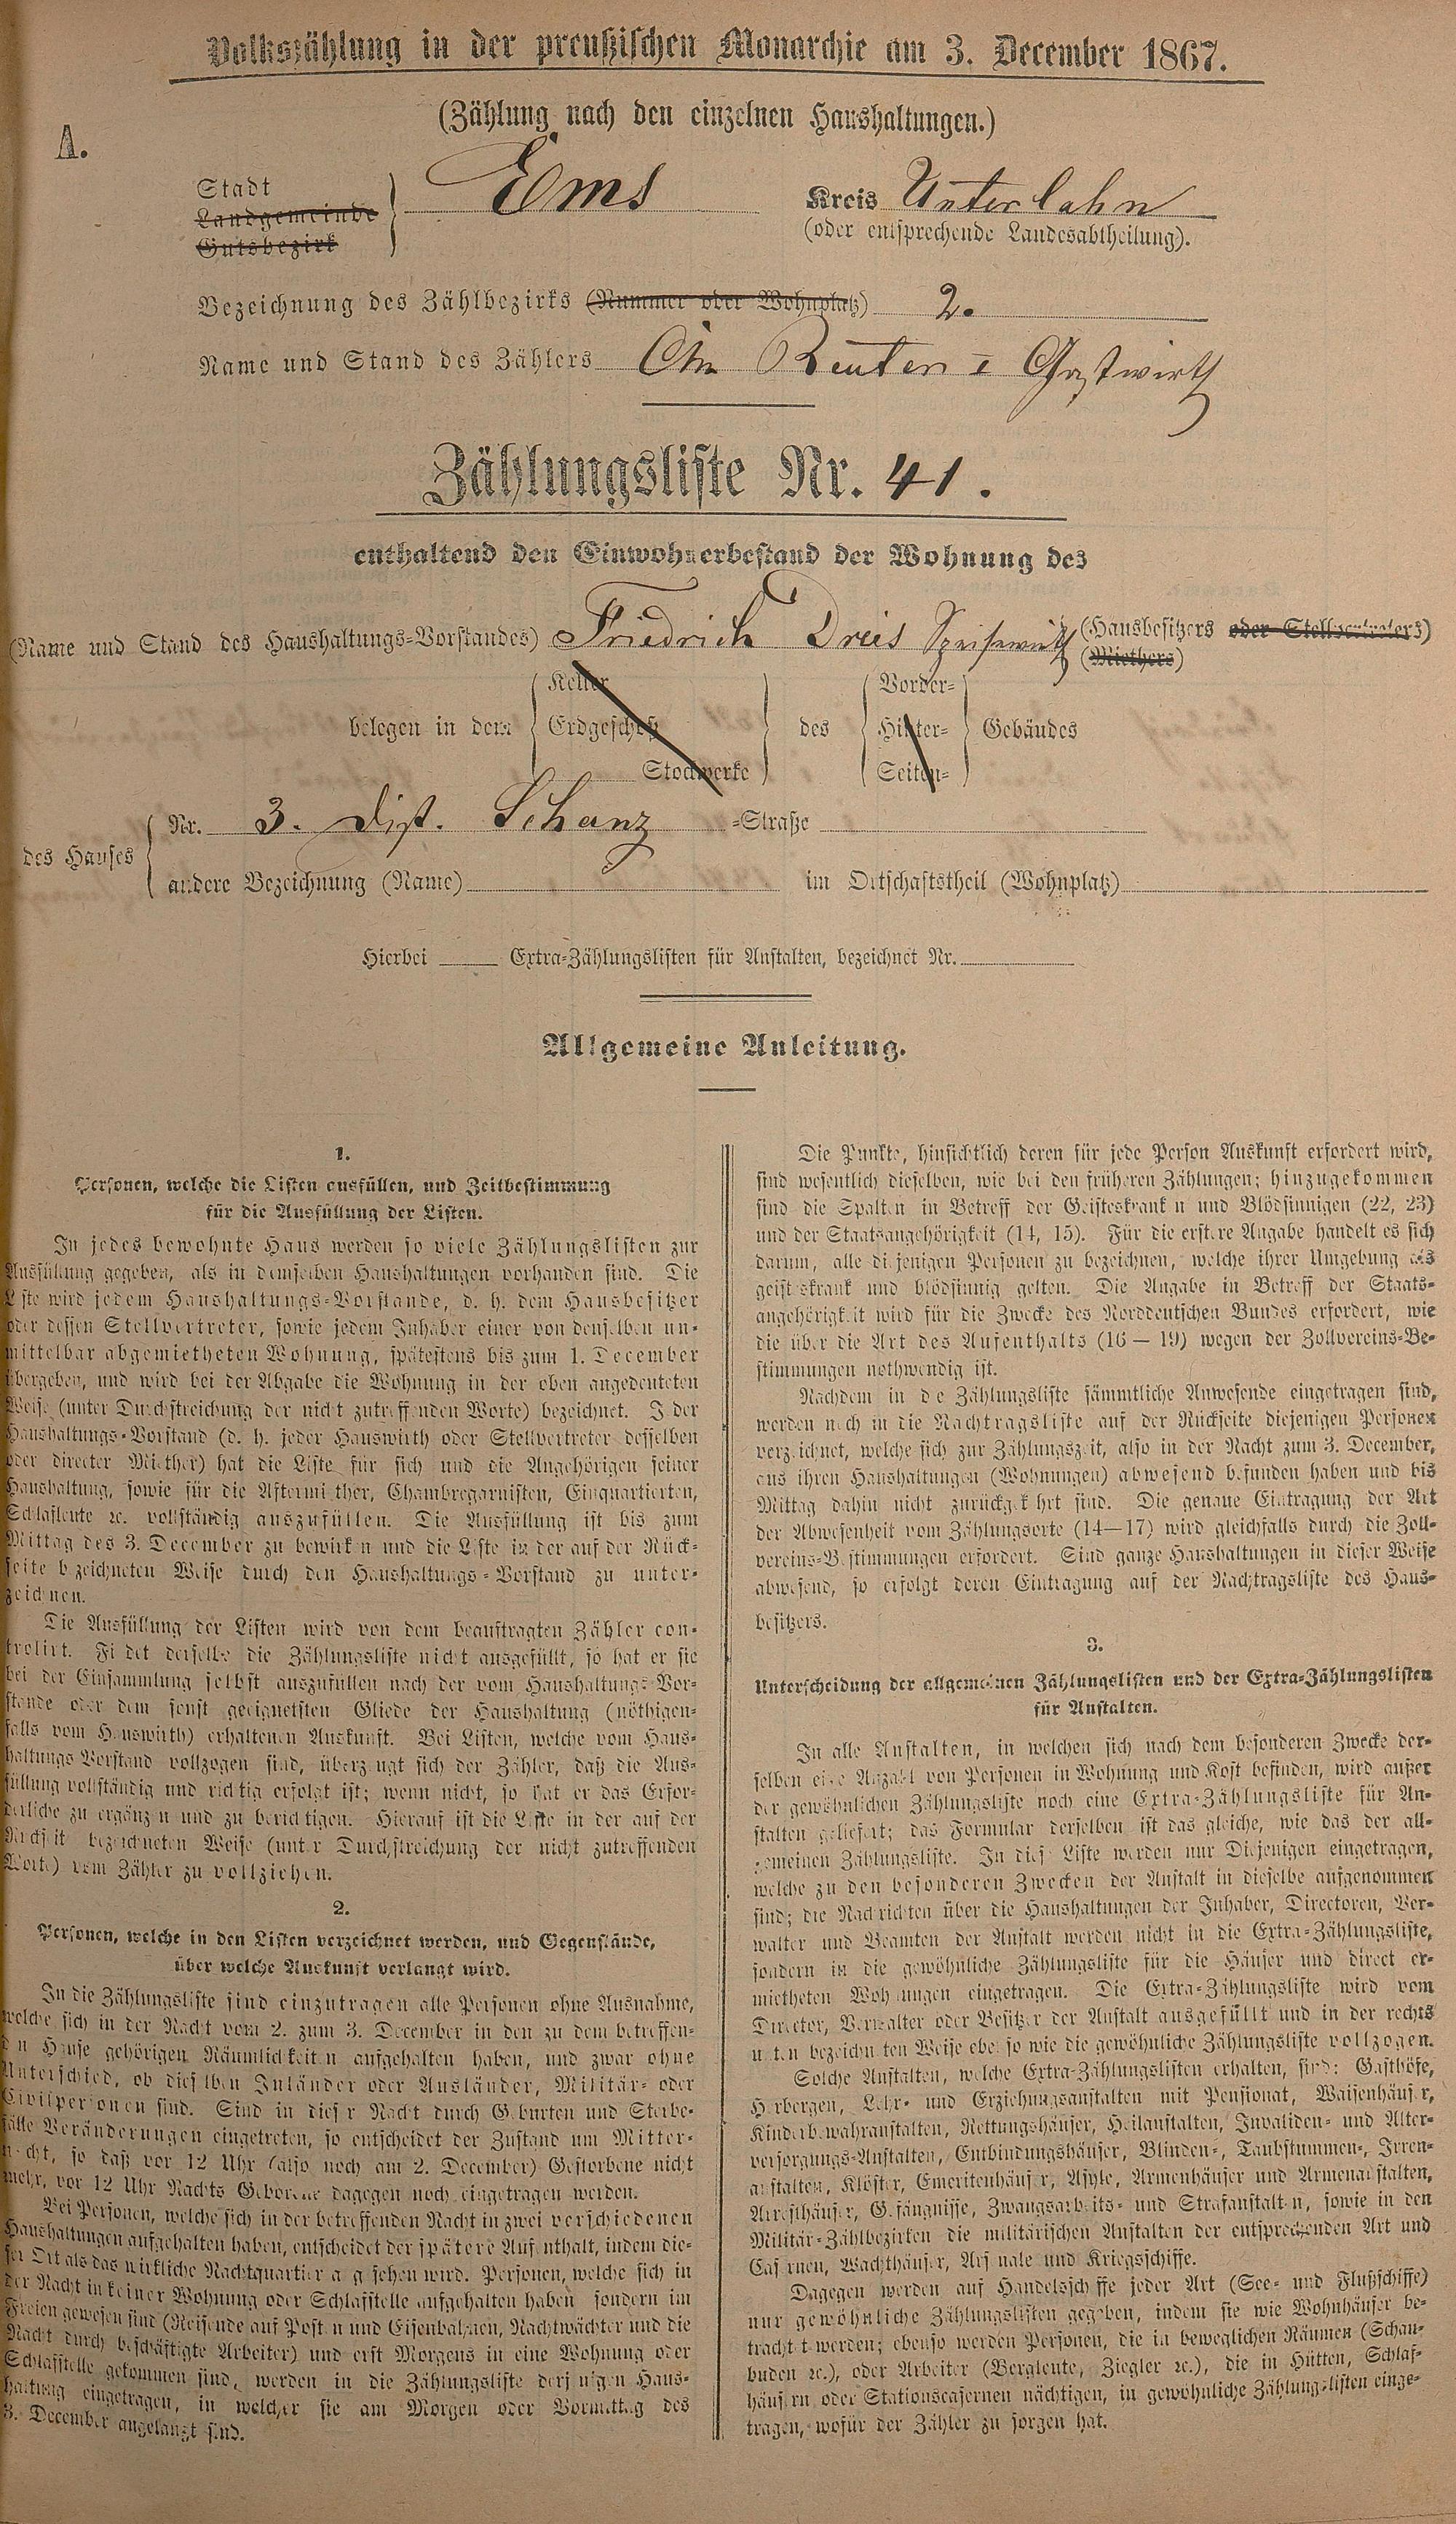 Volkszählung in der preußischen Monarchie am 3. December 1867.
(Zählung nach den einzelnen Haushaltungen.)
A.
Stadt
Landgemeinde
Gutsbezirk
Ems
Kreis Unterlahn
(oder entsprechende Landesabtheilung).
Bezeichnung des Zählbezirks (Nummer oder Wohnplatz) 2.
Name und Stand des Zählers Chr Reuter I Gastwirth
Zählungsliste Nr. 41.
enthaltend den Einwohnerbestand der Wohnung des
(Name und Stand des Haushaltungs-Vorstandes) Friedrich Dreis Speisewirth (Hausbesitzers oder Stellvertreters)
(Miethers)
belegen in dem
Keller
Erdgeschoß
Stockwerke
des
Vorder-
Hinter-
Seiten-
Gebäudes
des Hauses
Nr. 3. Dist. Schanz -Straße
andere Bezeichnung (Name) im Ortschaftstheil (Wohnplatz)
Hierbei Extra-Zählungslisten für Anstalten, bezeichnet Nr.
Allgemeine Anleitung.
1.
Personen, welche die Listen ausfüllen, und Zeitbestimmung
für die Ausfüllung der Listen.
In jedes bewohnte Haus werden so viele Zählungslisten zur
Ausfüllung gegeben, als in demselben Haushaltungen vorhanden sind. Die
Liste wird jedem Haushaltungs-Vorstande, d. h. dem Hausbesitzer
oder dessen Stellvertreter, sowie jedem Inhaber einer von denselben un-
mittelbar abgemietheten Wohnung, spätestens bis zum 1. December
übergeben, und wird bei der Abgabe die Wohnung in der oben angedeuteten
Weise (unter Durchstreichung der nicht zutreffenden Worte) bezeichnet. Jeder
Haushaltungs-Vorstand (d. h. jeder Hauswirth oder Stellvertreter desselben
oder directer Miether) hat die Liste für sich und die Angehörigen seiner
Haushaltung, sowie für die Aftermiether, Chambregarnisten, Einquartierten,
Schlafleute ꝛc. vollständig auszufüllen. Die Ausfüllung ist bis zum
Mittag des 3. December zu bewirken und die Liste in der auf der Rück-
seite bezeichneten Weise durch den Haushaltungs-Vorstand zu unter-
zeichnen.
Die Ausfüllung der Listen wird von dem beauftragten Zähler con-
trolirt. Findet derselbe die Zählungsliste nicht ausgefüllt, so hat er sie
bei der Einsammlung selbst auszufüllen nach der vom Haushaltungs-Vor-
stande oder dem sonst geeignetsten Gliede der Haushaltung (nöthigen-
falls vom Hauswirth) erhaltenen Auskunft. Bei Listen, welche vom Haus-
haltungs-Vorstand vollzogen sind, überzeugt sich der Zähler, daß die Aus-
füllung vollständig und richtig erfolgt ist; wenn nicht, so hat er das Erfor-
derliche zu ergänzen und zu berichtigen. Hierauf ist die Liste in der auf der
Rückseite bezeichneten Weise (unter Durchstreichung der nicht zutreffenden
Worte) vom Zähler zu vollziehen.
2.
Personen, welche in den Listen verzeichnet werden, und Gegenstände,
über welche Auskunft verlangt wird.
In die Zählungsliste sind einzutragen alle Personen ohne Ausnahme,
welche sich in der Nacht vom 2. zum 3. December in den zu dem betreffen-
den Hause gehörigen Räumlichkeiten aufgehalten haben, und zwar ohne
Unterschied, ob dieselben Inländer oder Ausländer, Militär- oder
Civilpersonen sind. Sind in dieser Nacht durch Geburten und Sterbe-
fälle Veränderungen eingetreten, so entscheidet der Zustand um Mitter-
nacht, so daß vor 12 Uhr (also noch am 2. December) Gestorbene nicht
mehr, vor 12 Uhr Nachts Geborene dagegen noch eingetragen werden.
Bei Personen, welche sich in der betreffenden Nacht in zwei verschiedenen
Haushaltungen aufgehalten haben, entscheidet der spätere Aufenthalt, indem die-
ser Ort als das wirkliche Nachtquartier angesehen wird. Personen, welche sich in
der Nacht in keiner Wohnung oder Schlafstelle aufgehalten haben sondern im
Freien gewesen sind (Reisende auf Posten und Eisenbahnen, Nachtwächter und die
Nacht durch beschäftigte Arbeiter) und erst Morgens in eine Wohnung oder
Schlafstelle gekommen sind, werden in die Zählungsliste derjenigen Haus-
haltung eingetragen, in welcher sie am Morgen oder Vormittag des
3. December angelangt sind.
Die Punkte, hinsichtlich deren für jede Person Auskunft erfordert wird,
sind wesentlich dieselben, wie bei den früheren Zählungen; hinzugekommen
sind die Spalten in Betreff der Geisteskranken und Blödsinnigen (22, 23)
und der Staatsangehörigkeit (14, 15). Für die erstere Angabe handelt es sich
darum, alle diejenigen Personen zu bezeichnen, welche ihrer Umgebung als
geisteskrank und blödsinnig gelten. Die Angabe in Betreff der Staats-
angehörigkeit wird für die Zwecke des Norddeutschen Bundes erfordert, wie
die über die Art des Aufenthalts (16 — 19) wegen der Zollvereins-Be-
stimmungen nothwendig ist.
Nachdem in die Zählungsliste sämmtliche Anwesende eingetragen sind,
werden noch in die Nachtragsliste auf der Rückseite diejenigen Personen
verzeichnet, welche sich zur Zählungszeit, also in der Nacht zum 3. December,
aus ihren Haushaltungen (Wohnungen) abwesend befunden haben und bis
Mittag dahin nicht zurückgekehrt sind. Die genaue Eintragung der Art
der Abwesenheit vom Zählungsorte (14—17) wird gleichfalls durch die Zoll-
vereins-Bestimmungen erfordert. Sind ganze Haushaltungen in dieser Weise
abwesend, so erfolgt deren Eintragung auf der Nachtragsliste des Haus-
besitzers.
3.
Unterscheidung der allgemeinen Zählungslisten und der Extra-Zählungslisten
für Anstalten.
In alle Anstalten, in welchen sich nach dem besonderen Zwecke der-
selben eine Anzahl von Personen in Wohnung und Kost befinden, wird außer
der gewöhnlichen Zählungsliste noch eine Extra-Zählungsliste für An-
stalten geliefert; das Formular derselben ist das gleiche, wie das der all-
gemeinen Zählungsliste. In diese Liste werden nur Diejenigen eingetragen,
welche zu den besonderen Zwecken der Anstalt in dieselbe aufgenommen
sind; die Nachrichten über die Haushaltungen der Inhaber, Directoren, Ver-
walter und Beamten der Anstalt werden nicht in die Extra-Zählungsliste,
sondern in die gewöhnliche Zählungsliste für die Häuser und direct er-
mietheten Wohnungen eingetragen. Die Extra-Zählungsliste wird vom
Director, Verwalter oder Besitzer der Anstalt ausgefüllt und in der rechts
unten bezeichneten Weise ebenso wie die gewöhnliche Zählungsliste vollzogen.
Solche Anstalten, welche Extra-Zählungslisten erhalten, sind: Gasthöfe,
Herbergen, Lehr- und Erziehungsanstalten mit Pensionat, Waisenhäuser,
Kinderbewahranstalten, Rettungshäuser, Heilanstalten, Invaliden- und Alter-
versorgungs-Anstalten, Entbindungshäuser, Blinden-, Taubstummen-, Irren-
anstalten, Klöster, Emeritenhäuser, Asyle, Armenhäuser und Armenanstalten,
Arresthäuser, Gefängnisse, Zwangsarbeits- und Strafanstalten, sowie in den
Militär-Zählbezirken die militärischen Anstalten der entsprechenden Art und
Casernen, Wachthäuser, Arsenale und Kriegsschiffe.
Dagegen werden auf Handelsschiffe jeder Art (See- und Flußschiffe)
nur gewöhnliche Zählungslisten gegeben, indem sie wie Wohnhäuser be-
trachtet werden; ebenso werden Personen, die in beweglichen Räumen (Schau-
buden ꝛc.), oder Arbeiter (Bergleute, Ziegler ꝛc.), die in Hütten, Schlaf-
häusern oder Stationscasernen nächtigen, in gewöhnliche Zählungslisten einge-
tragen, wofür der Zähler zu sorgen hat.